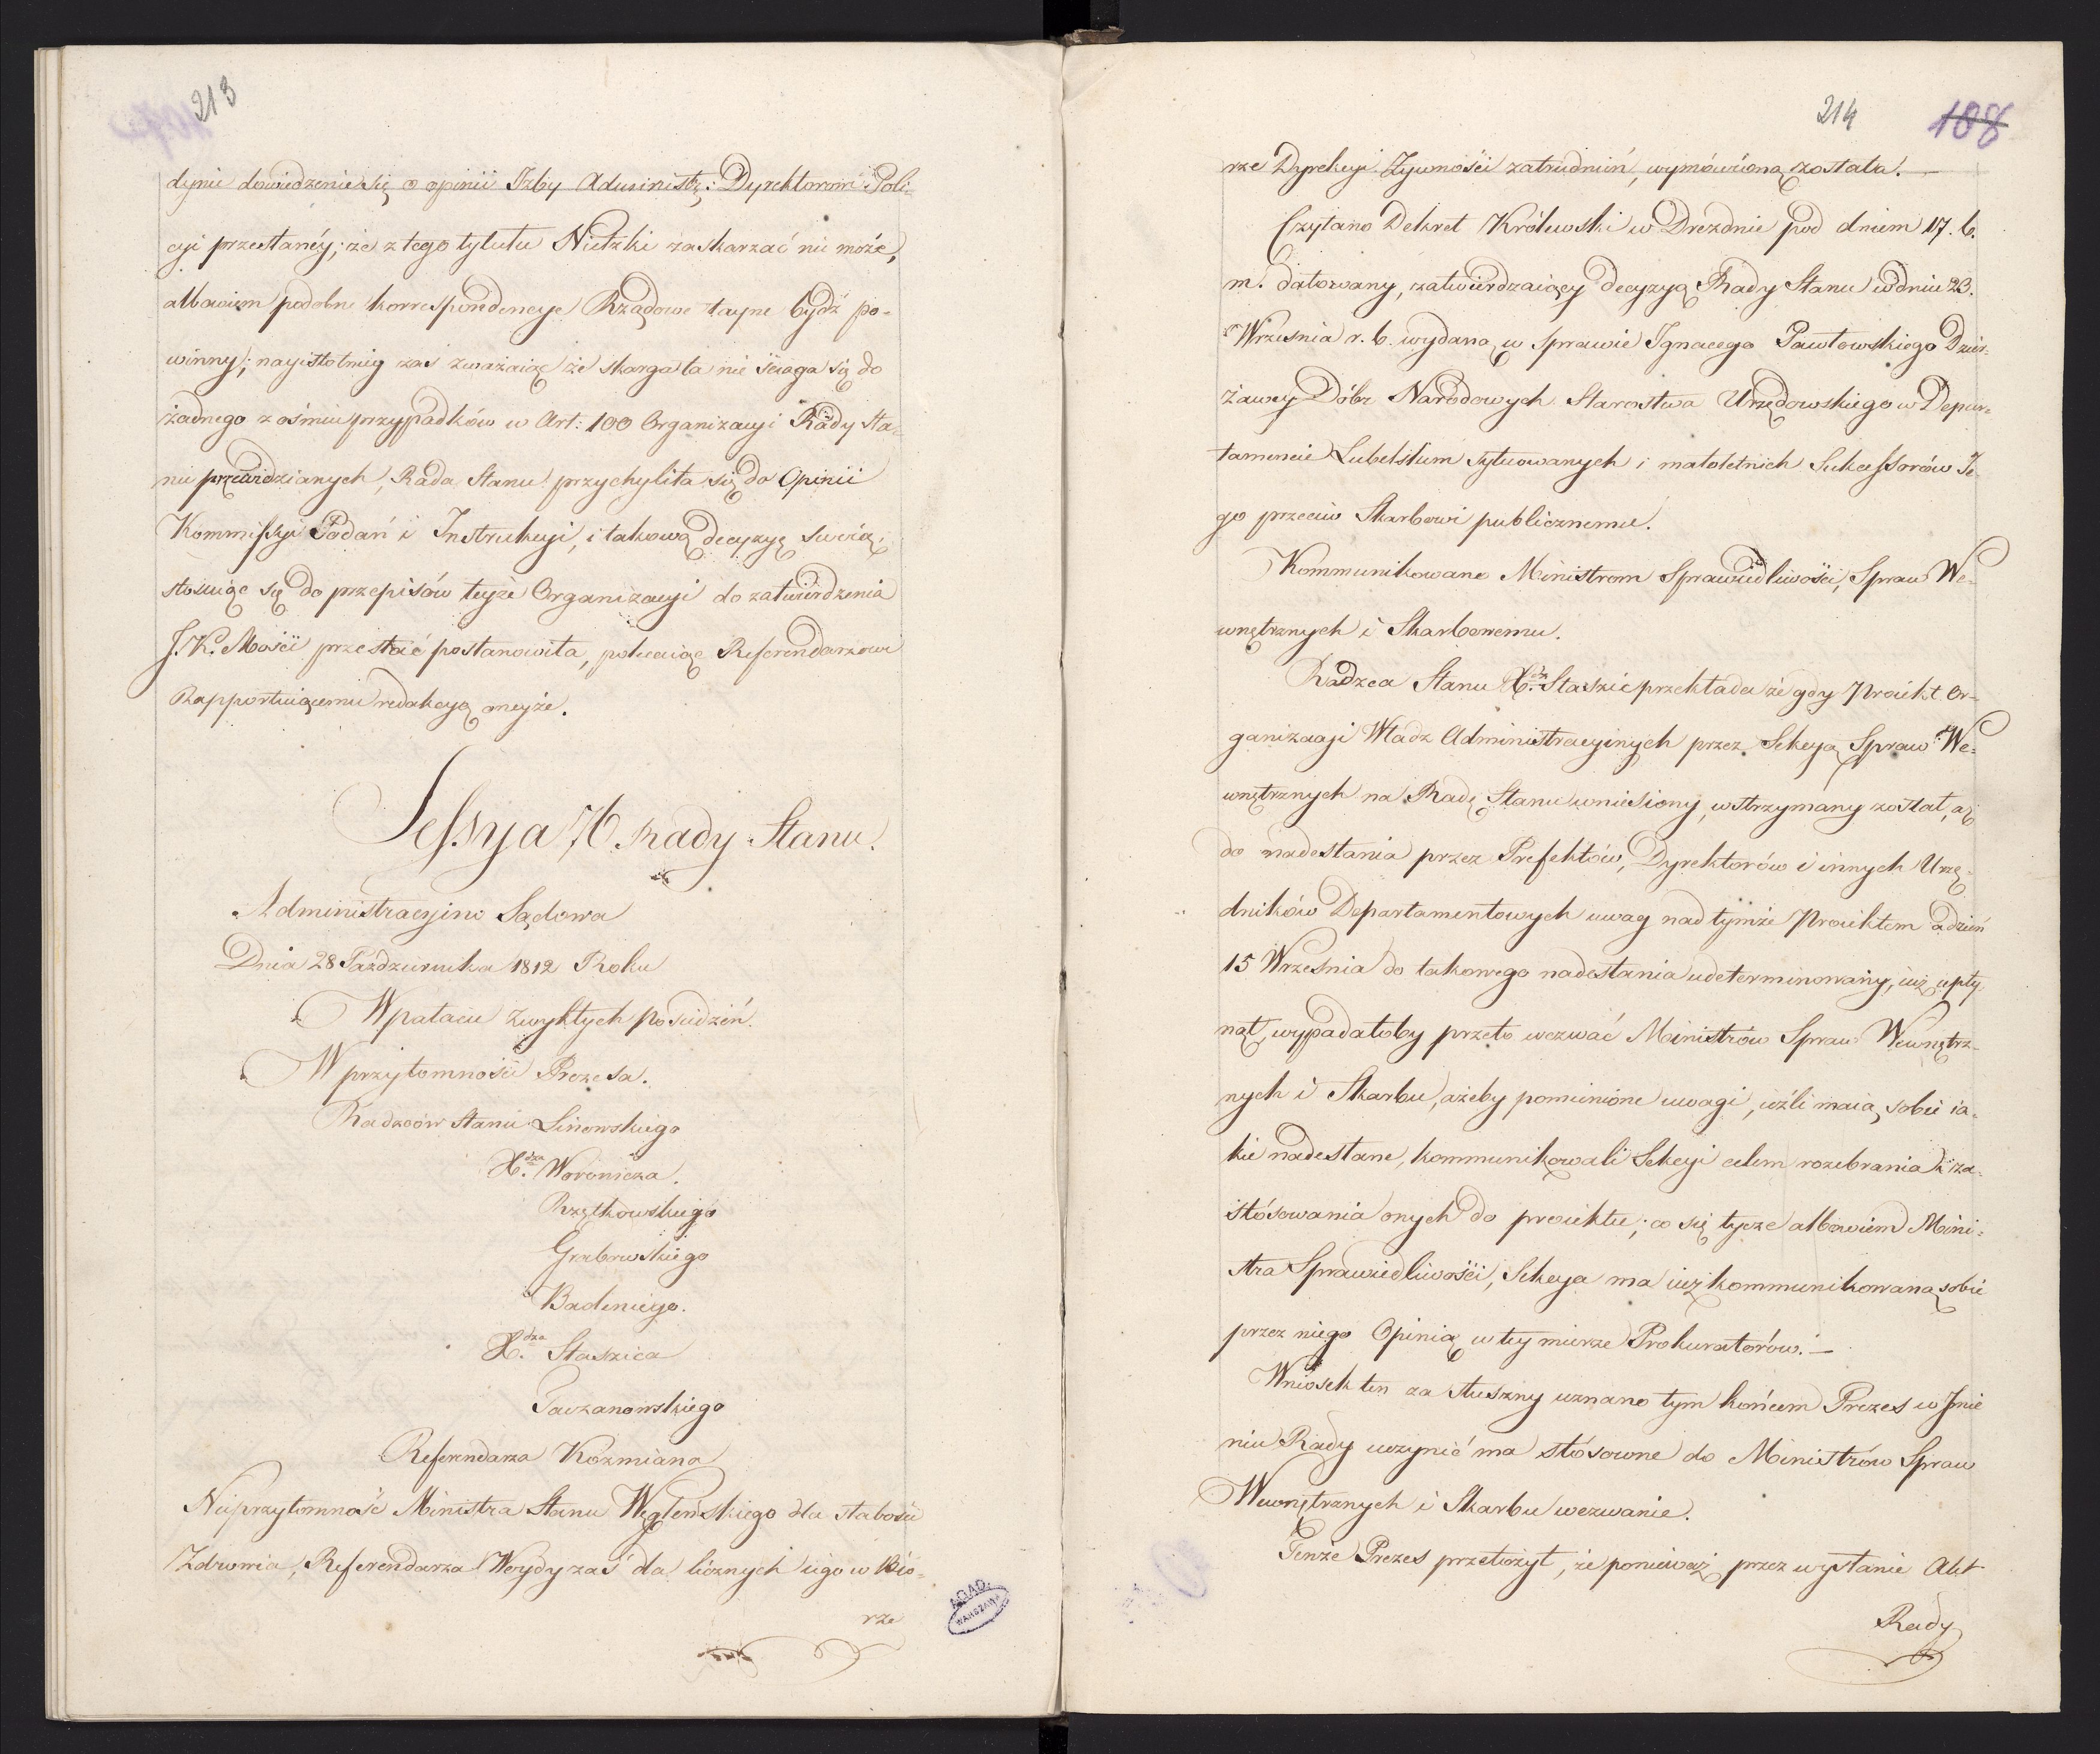 213
dynie dowiedzenie się o opinii Izby Administr: Dyrektorowi Poli-
cyi przesłanéy; że z tego tytułu Nietzki zaskarzać nie może,
albowiem podobne korrespondencye Rządowe tayne bydź po-
winny; nayistotniey zaś zważaiąc że skarga ta nie ściąga się do
żadnego z ośmiu przypadków w Art: 100 Organizacyi Rady Sta-
nu przewidzianych, Rada Stanu przychyliła się do Opinii
Kommissyi Podań i Instrukcyi, i takową decyzyą swoią,
stosuiąc się do przepisów teyże Organizacyi do zatwierdzenia
J. K. Mości przesłać postanowiła, polecaiąc Referendarzowi
Rapportuiącemu redakcyą oneyże.
Sessya 76. Rady Stanu.
Administracyino Sądowa
Dnia 28 Października 1812 Roku
W pałacu zwykłych posiedzeń.
W przytomności Prezesa.
Radzców Stanu Linowskiego
X.dza Woronicza.
Rzętkowskiego
Grabowskiego
Badeniego.
X.dza Staszica
Taczanowskiego
Referendarza Koźmiana
Nieprzytomność Ministra Stanu Węgleńskiego dla słabości
Zdrowia, Referendarza Woydy zaś dla licznych iego w Bió-
rze
214 108
rze Dyrekcyi Żywności zatrudnień, wymówioną została.—
Czytano Dekret Królewski w Dreźdnie pod dniem 17. b.
m. datowany, zatwierdzaiący decyzyą Rady Stanu w dniu 23.
Wrzesnia r. b. wydaną w sprawie Ignacego Pawłowskiego Dzier-
żawcy Dóbr Narodowych Starostwa Urzędowskiego w Depar-
tamencie Lubelskim sytuowanych i małoletnich Sukcessorów Je-
go przeciw Skarbowi publicznemu.
Kommunikowano Ministrom Sprawiedliwości, Spraw We-
wnętrznych i Skarbowemu.
Radzca Stanu X.dz Staszic przekłada że gdy Proiekt Or-
ganizacyi Władz Administracyinych przez Sekcyą Spraw We-
wnętrznych na Radę Stanu wniesiony, wstrzymany został, aż
do nadesłania przez Prefektów, Dyrektorów i innych Urzę-
dników Departamentowych uwag nad tymże Proiektem a dzień
15 Września do takowego nadesłania udeterminowany, iuż upły-
nął, wypadałoby przeto wezwać Ministrów Spraw Wewnętrz-
nych i Skarbu, ażeby pomienione uwagi, ieźli maią sobie ia-
kie nadesłane, kommunikowali Sekcyi celem rozebrania i za-
stósowania onych do proiektu; co się tycze albowiem Mini-
stra Sprawiedliwości, Sekcya ma iuż kommunikowaną sobie
przez niego Opinią w tey mierze Prokuratorów.—
Wniosek ten za słuszny uznano tym końcem Prezes w Jmie
niu Rady uczynić ma stósowne do Ministrów Spraw
Wewnętrznych i Skarbu wezwanie.
Tenże Prezes przełożył, że ponieważ przez wysłanie Akt
Rady
A.G.A.D.
WARSZAWA